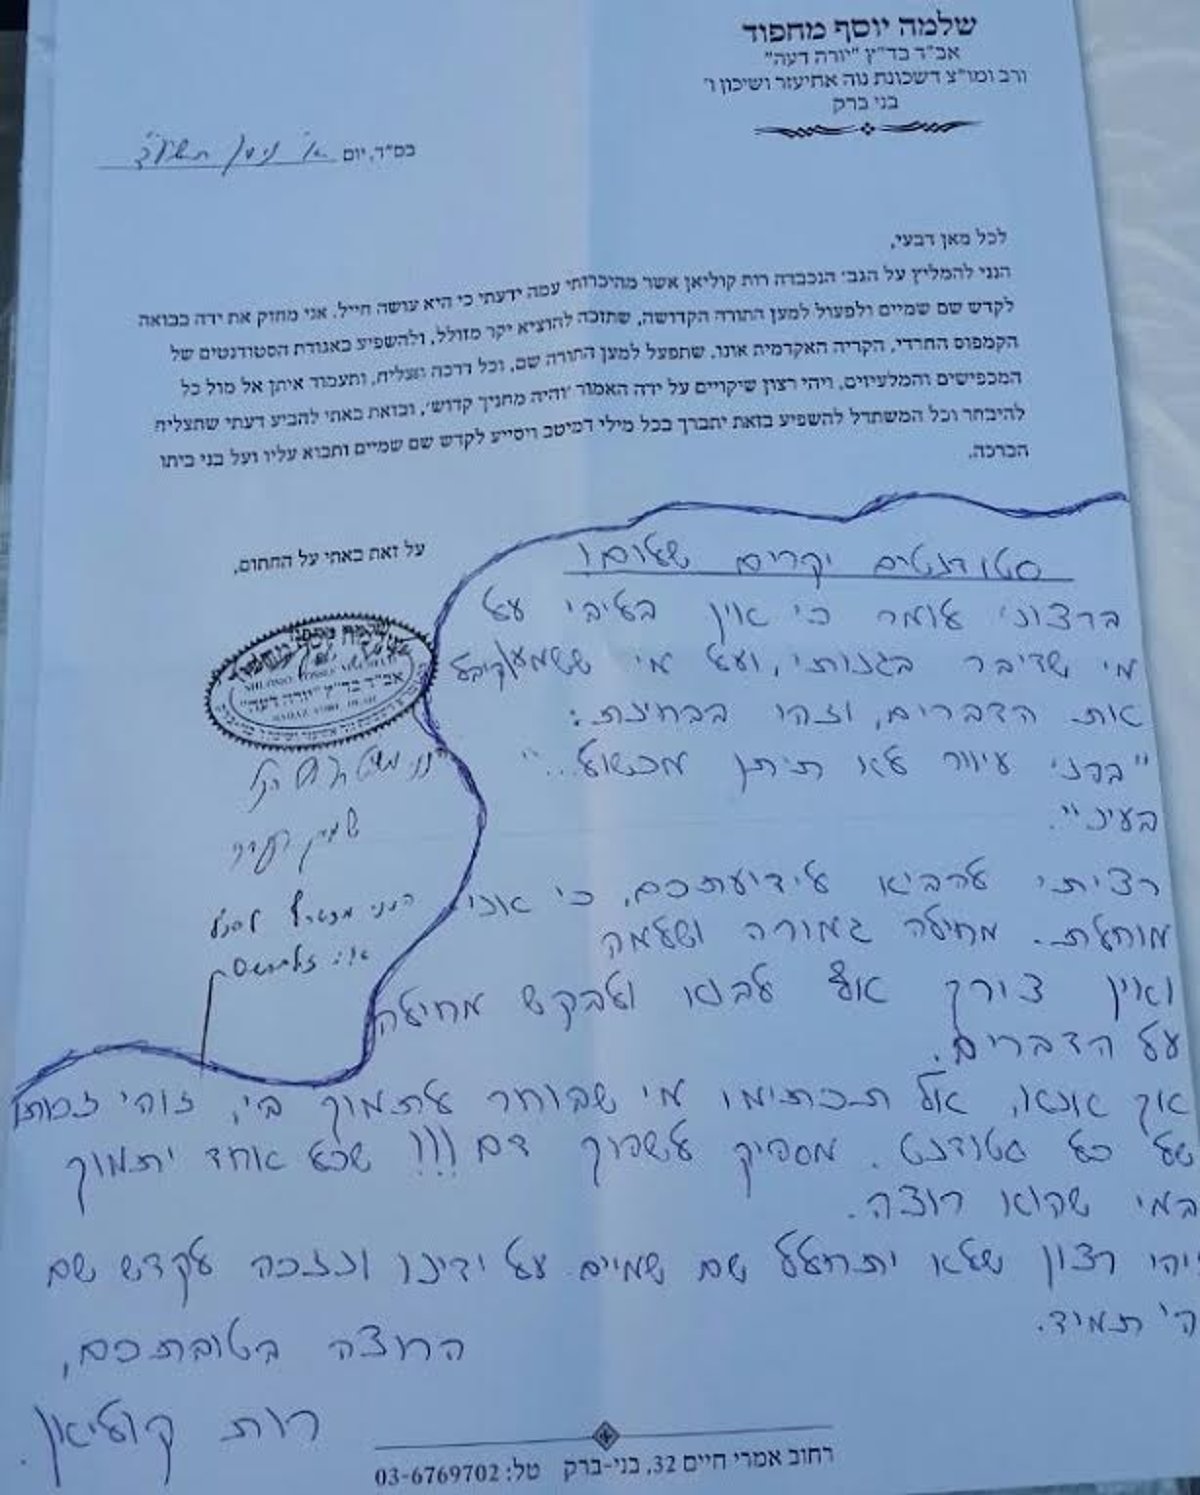 שלמה יוסף מחפוד
אב"ד בד"ץ "יורה דעה"
ורב ומו"צ דשכונת נוה אחיעזר ושיכון ו'
בני ברק
בס"ד, יום א' ניסן תשע"ד
לכל מאן דבעי,
הנני להמליץ על הגב' הנכבדה רות קוליאן אשר מהיכרותי עמה ידעתי כי היא עושה חייל. אני מחזק את ידה בבואה
לקדש שם שמיים ולפעול למען התורה הקדושה, שתזכה להוציא יקר מזולל, ולהשפיע באגודת הסטודנטים של
הקמפוס החרדי, הקריה האקדמית אונו, שתפעל למען התורה שם, וכל דרכה תצליח, ותעמוד איתן אל מול כל
המכפישים והמלעיזים, ויהי רצון שיקויים על ידה האמור 'והיה מחניך קדוש', ובזאת באתי להביע דעתי שתצליח
להיבחר וכל המשתדל להשפיע בזאת יתברך בכל מילי דמיטב ויסייע לקדש שם שמיים ותבוא עליו ועל בני ביתו
הברכה.
על זאת באתי על החתום,
אב"ד בד"ץ "יורה דעה"
סטודנטים יקרים שלום!
ברצוני לומר כי אין בליבי על
מי שדיבר בגנותי, ועל מי ששמע וקיבל
את הדברים, וזהו בבחינת:
"בפני עיוור לא תיתן מכשול..."
בעיני".
רציתי להביא לידיעתכם, כי אני
מוחלת. מחילה גמורה ושלמה
ואין צורך אף לבוא ולבקש מחילה
על הדברים.
אך אנא, אל תכתימו מי שבוחר לתמוך בי, זוהי זכותו
של כל סטודנט. מספיק לשפוך דם!!! שכל אחד יתמוך
במי שהוא רוצה.
יהי רצון שלא יתחלל שם שמיים על ידינו ונזכה לקדש שם
ה' תמיד.
הרוצה בטובתכם,
רות קוליאן.
רחוב אמרי חיים 32, בני-ברק טל: 03-6769702